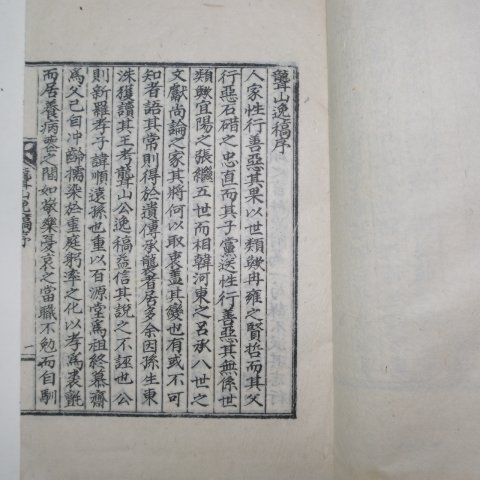 聾山逸稿序
人家性行善惡其果以世類歟冉雍之賢哲而其父
行惡石碏之忠直而其子
性行善惡其無係世
類歟宜陽之張繼五世而相韓河東之呂承八世之
文獻尚論之家其將何以取衷盖其變也有或不可
知者語其常則得於遺傳承襲者居多余因孫生東
洙獲讀其王考聾山公逸稿益信其說之不誣也公
則新羅孝子諱順遠孫也重以百源堂爲祖終慕齋
爲父已自冲齡擩染於重庭躬率之化以孝爲表
而居養病喪之間如敬樂憂哀之當職不勉而自馴
聾山逸稿序
一